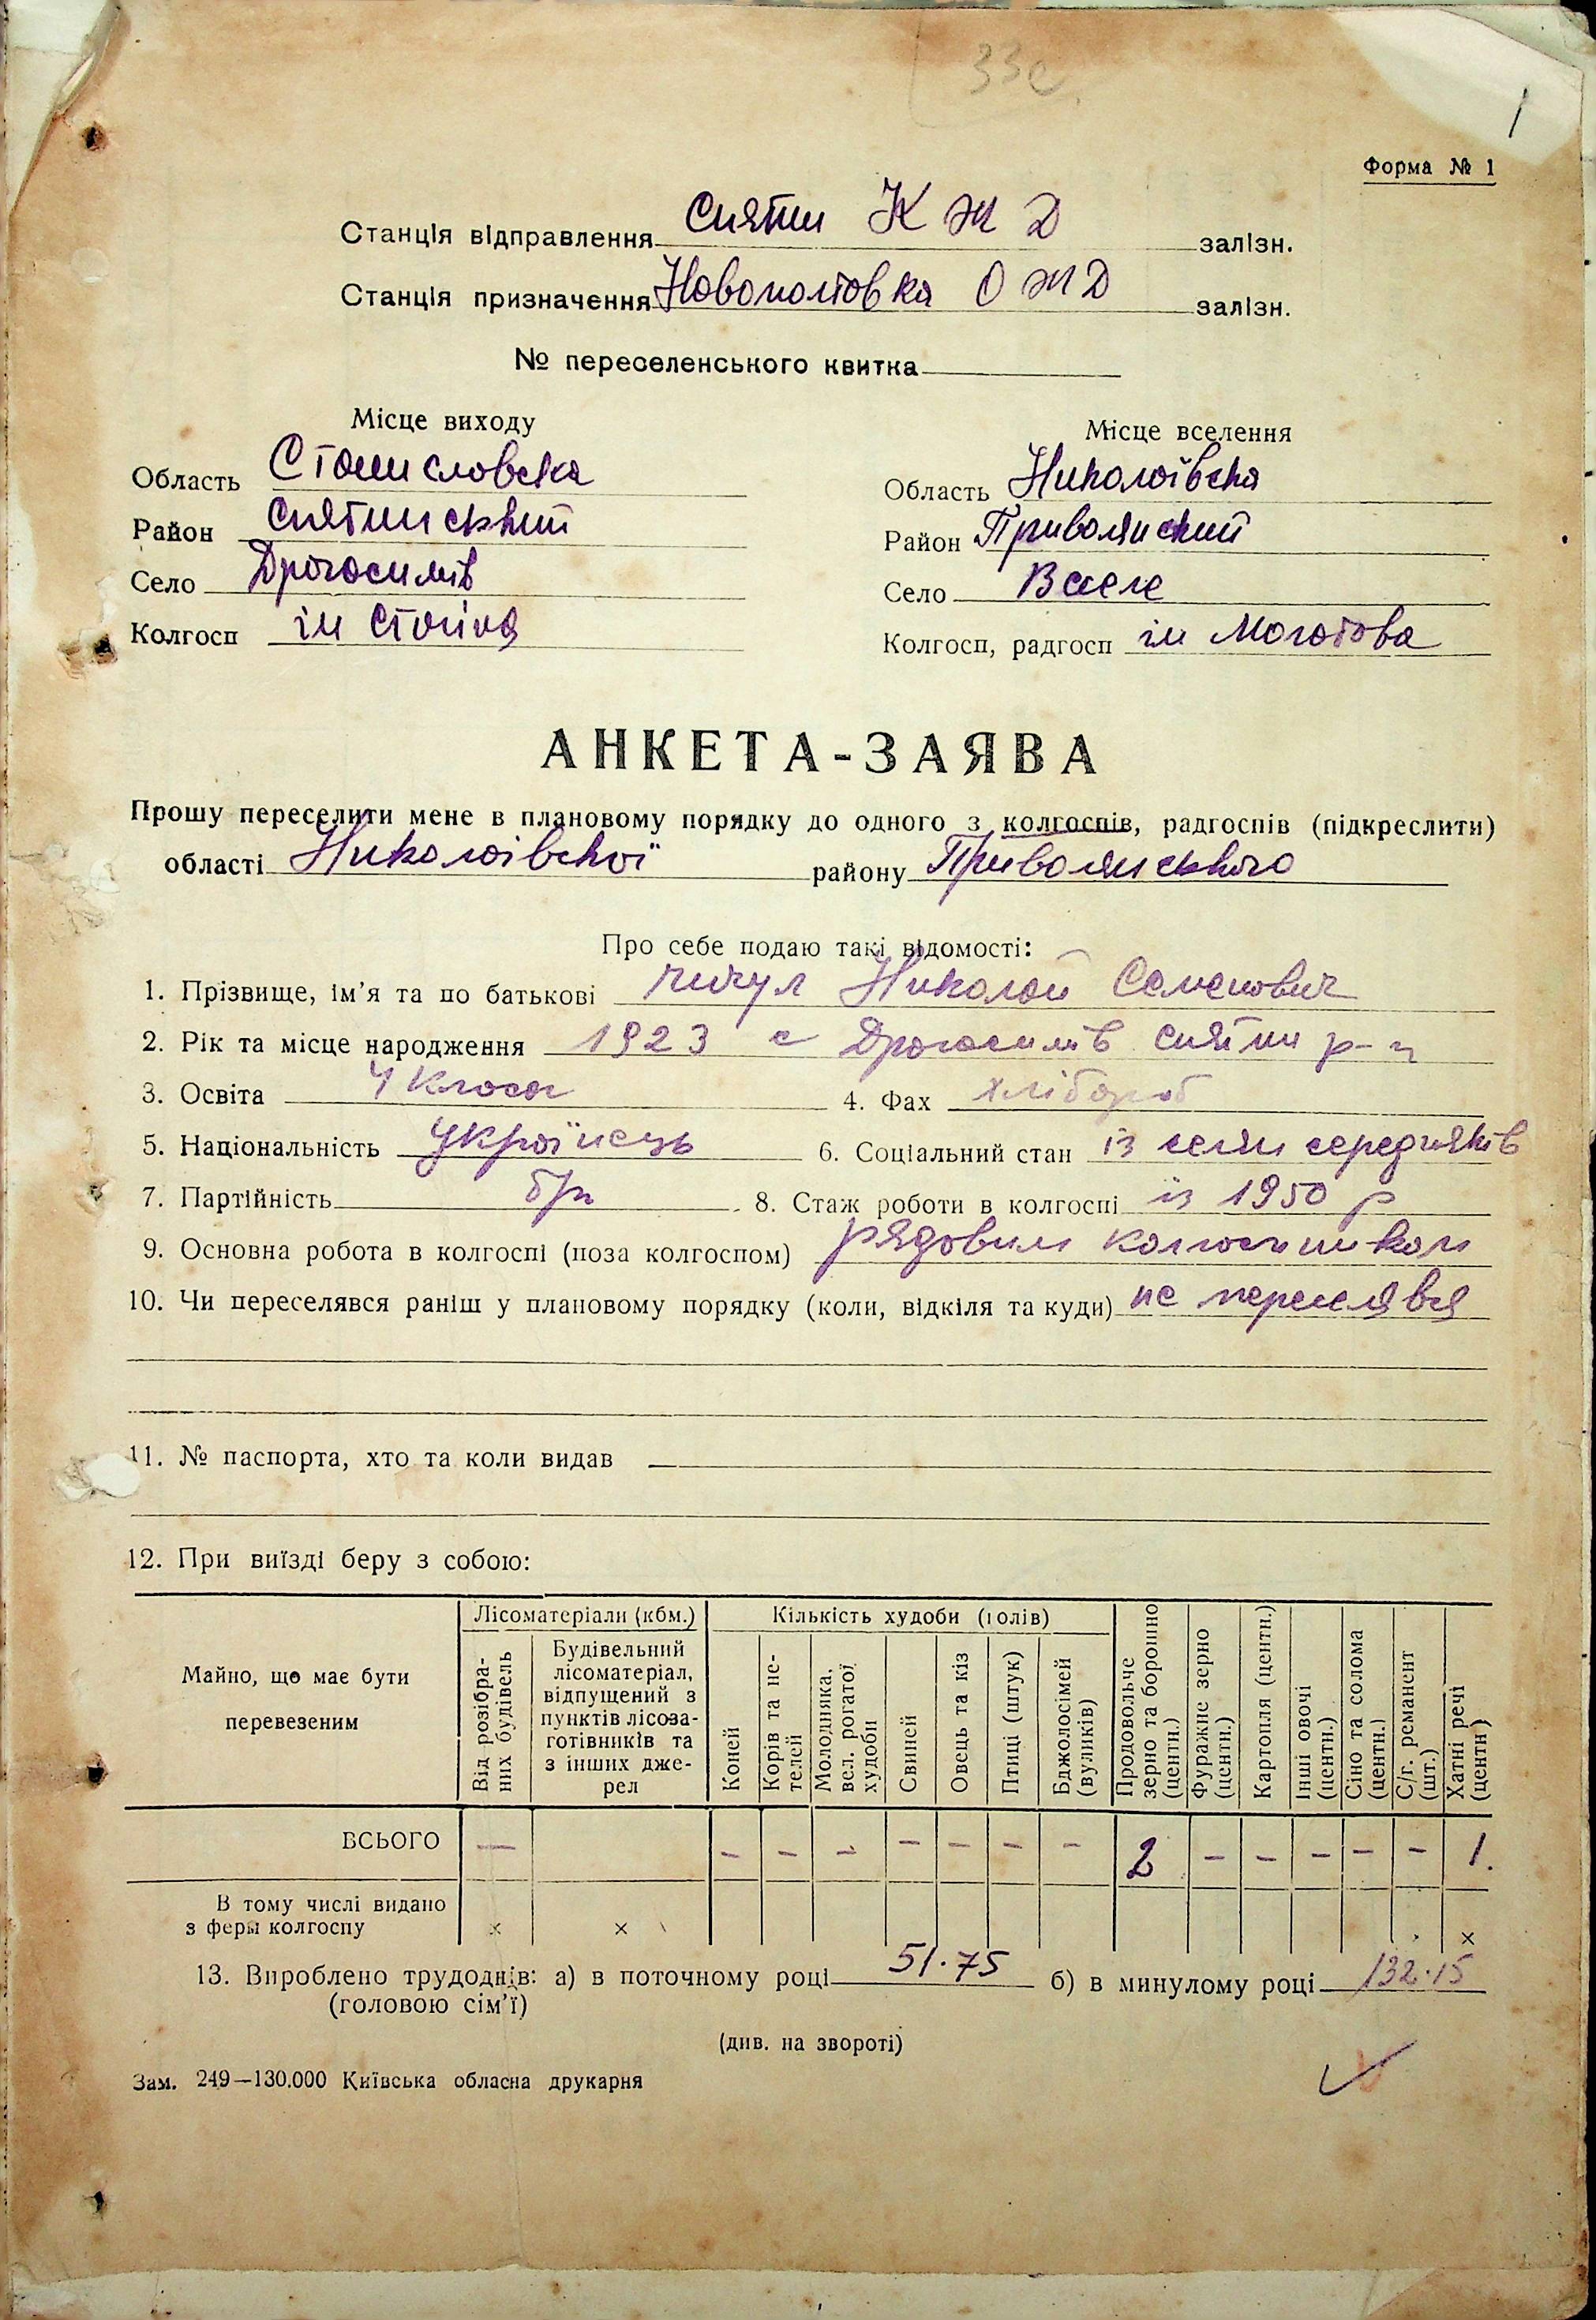 33с
1
Форма № 1
Станція відправлення Снятин К Ж Д залізн.
Станція призначення Новополтовка О Ж Д залізн.
№ переселенського квитка
Місце виходу
Місце вселення
Область Станиславська
Область Николаївська
Район Снятинський
Район Привольнский
Село Драгасимів
Село Веселе
Колгосп ім Сталіна
Колгосп, радгосп ім Молотова
АНКЕТА-ЗАЯВА
Прошу переселити мене в плановому порядку до одного з колгоспів, радгоспів (підкреслити)
області Николаївської району Привольнського
Про себе подаю такі відомості:
1. Прізвище, ім'я та по батькові Николай Семенович
2. Рік та місце народження 1923 с Драгасимів Снятин р-н
3. Освіта 4 класа 4. Фах хлібороб
5. Національність українець 6. Соціальний стан із семи середняків
7. Партійність б/п 8. Стаж роботи в колгоспі із 1950 р
9. Основна робота в колгоспі (поза колгоспом) рядовим колгоспником
10. Чи переселявся раніш у плановому порядку (коли, відкіля та куди) не переселявся
11. № паспорта, хто та коли видав
12. При виїзді беру з собою:
Майно, що має бути перевезеним
Лісоматеріали (кбм.)
Від розібраних будівель
Будівельний лісоматеріал, відпущений з пунктів лісозаготівників та з інших джерел
Кількість худоби (голів)
Коней
Корів та нетелей
Молодняка, вел. рогатої худоби
Свиней
Овець та кіз
Птиці (штук)
Бджолосімей (вуликів)
Продовольче зерно та борошно (центн.)
Фуражне зерно (центн.)
Картопля (центн.)
Інші овочі (центн.)
Сіно та солома (центн.)
С/г. реманент (шт.)
Хатні речі (центн)
ВСЬОГО — – – – – – – – 2 – – – – – 1.
В тому числі видано з ферм колгоспу × × ×
13. Вироблено трудоднів: а) в поточному році 51.75 б) в минулому році 132.15
(головою сім'ї)
(див. на звороті)
Зам. 249—130.000 Київська обласна друкарня